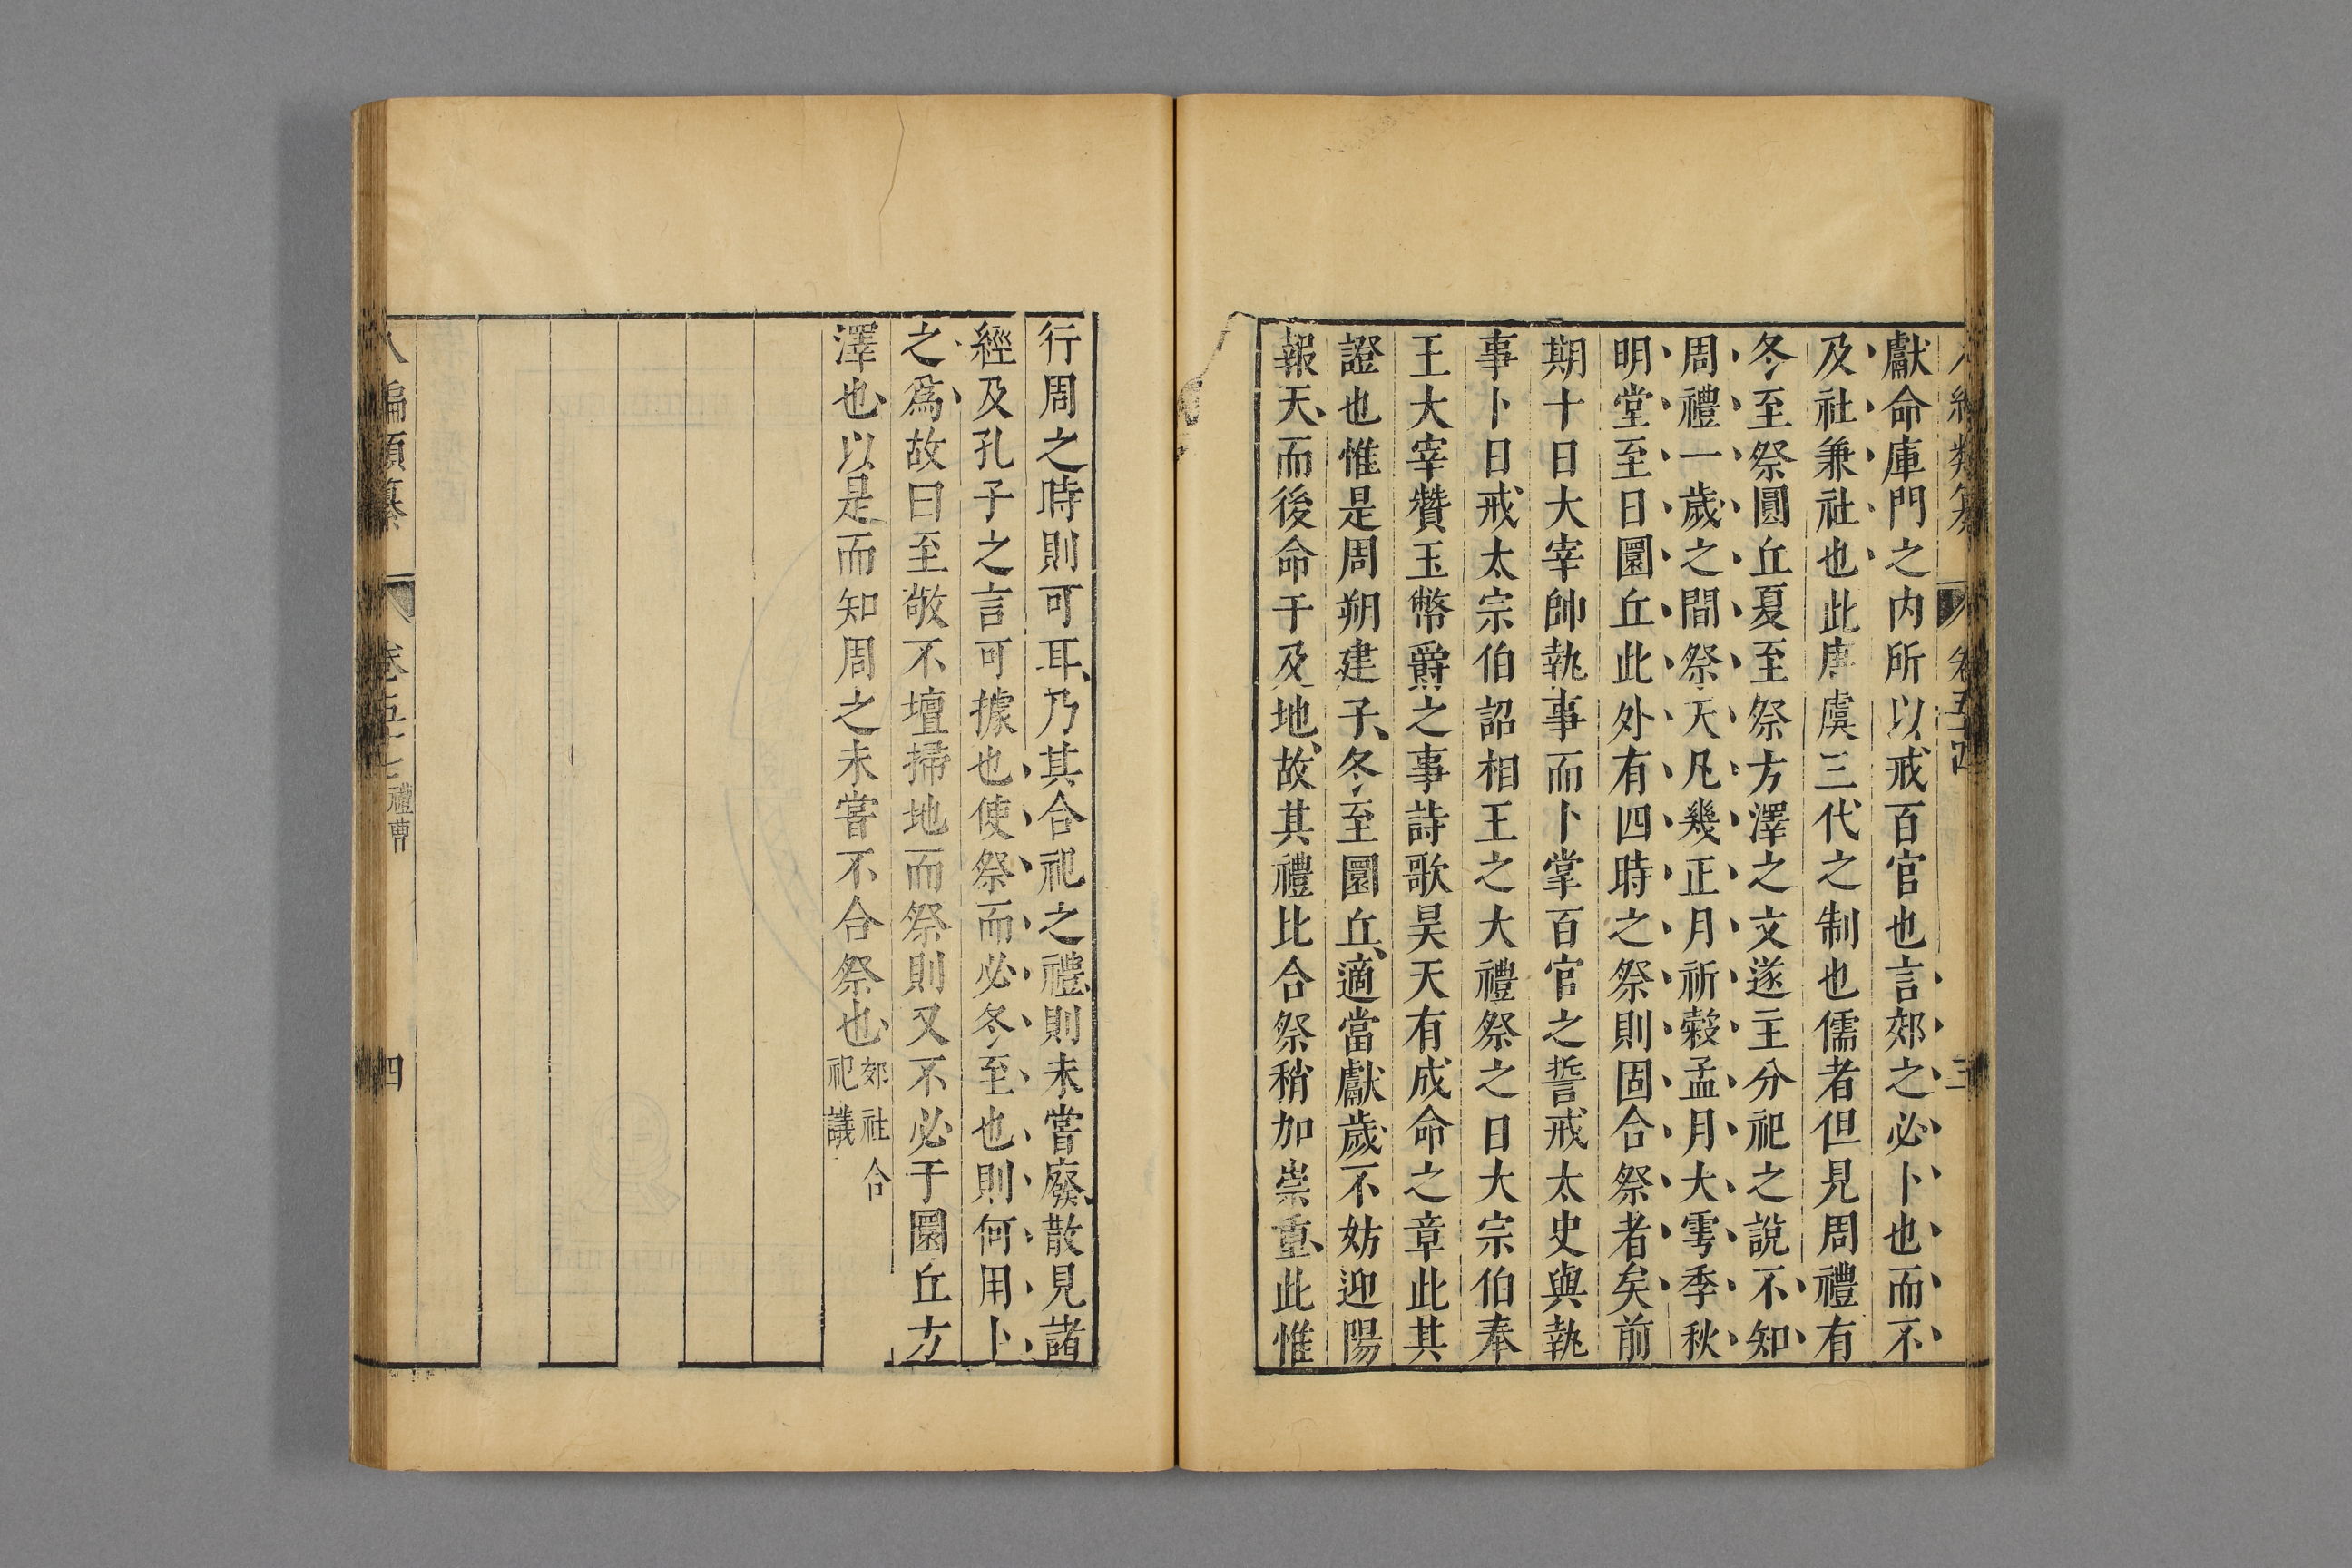 獻命庫門之内所以戒百官也言郊之必卜也而不
及社兼社也此唐虞三代之制也儒者但見周禮有
冬至祭圜丘夏至祭方澤之文遂主分祀之說不知
周禮一歲之間祭天凡幾正月祈穀孟月大雩季秋
明堂至日圜丘此外有四時之祭則固合祭者矣前
期十日大宰帥執事而卜掌百官之誓戒太史與執
事卜日戒太宗伯詔相王之大禮祭之日大宗伯奉
王大宰贊玉幣爵之事詩歌昊天有成命之章此其
證也惟是周朔建子冬至圜丘適當獻歲不妨迎陽
報天而後命于及地故其禮比合祭稍加崇重此惟
行周之時則可耳乃其合祀之禮則未嘗廢散見諸
經及孔子之言可據也使祭而必冬至也則何用卜
之為故曰至敬不壇掃地而祭則又不必于圜丘方
澤也以是而知周之未嘗不合祭也
郊社合
祀議
八編類纂 卷五十 禮曹 四